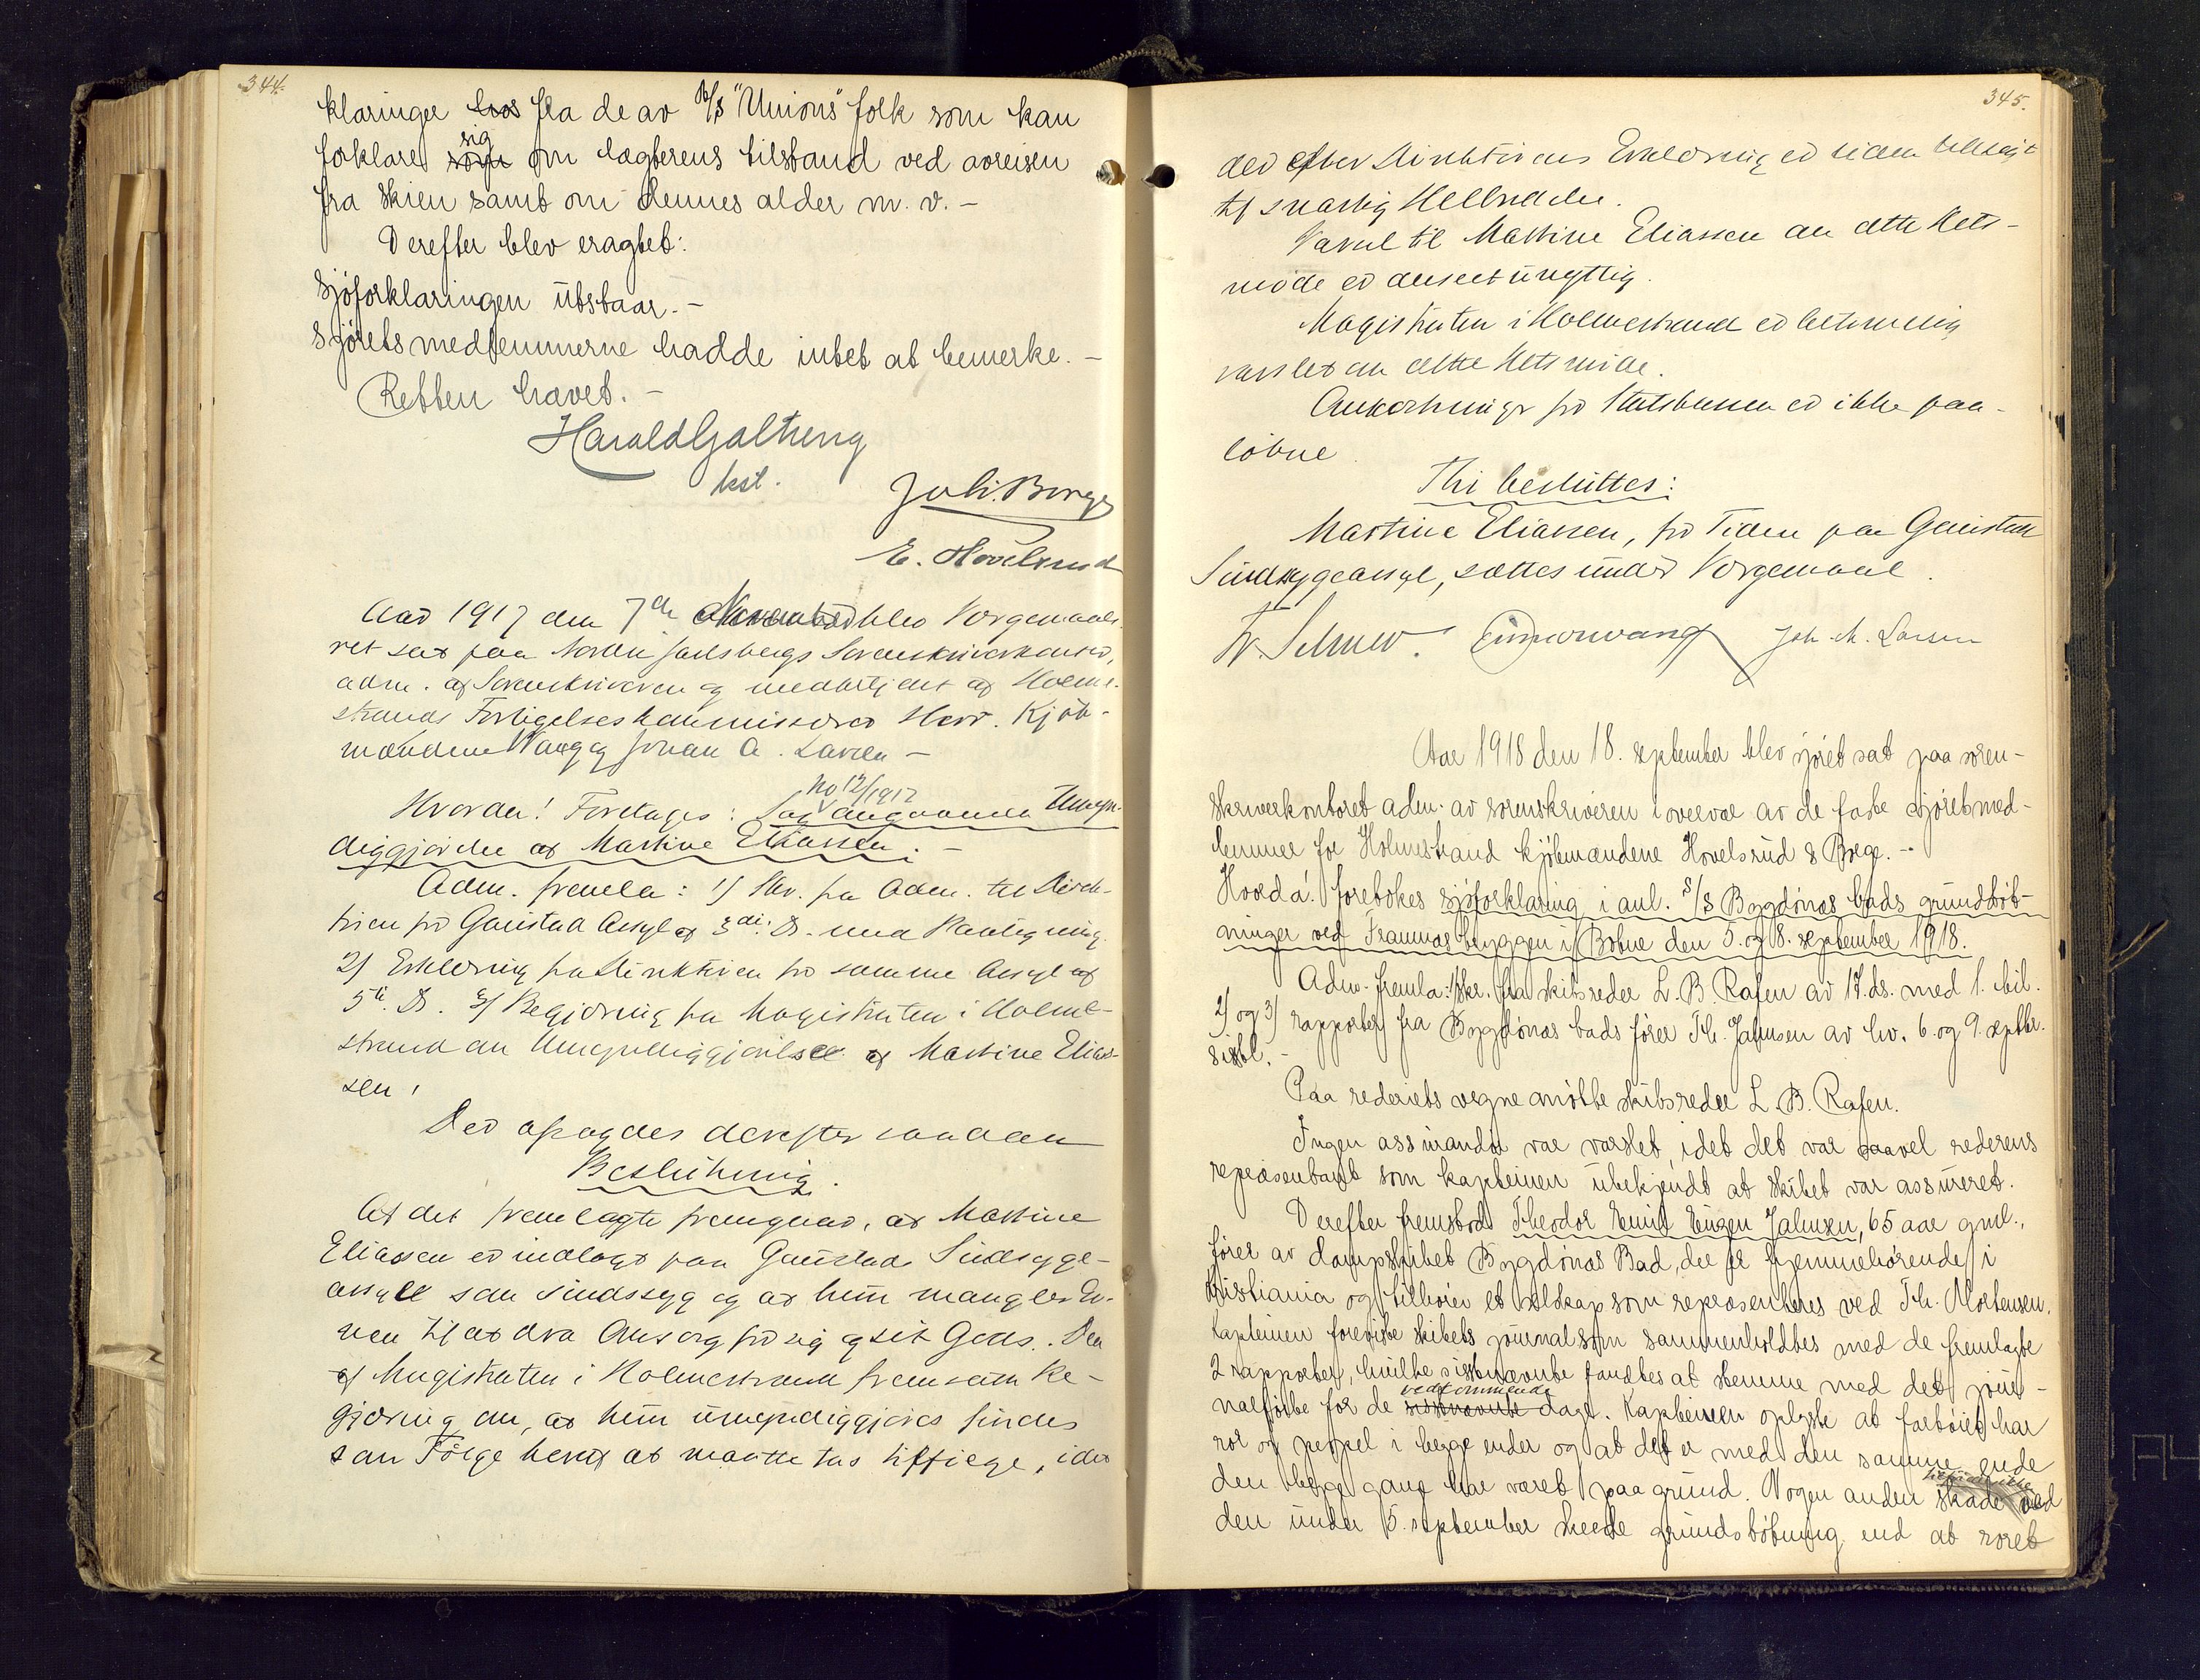 344.
klaringer hos fra de av B/s "Unions" folk som kan
forklare som sig om lægterens tilstand ved avreisen
fra Skien samt om dennes alder m. v. -
Derefter blev eragtet:
Sjøforklaringen utstaar. -
Sjørets medlemmerne hadde intet at bemerke. -
Retten hævet. -
Harald Galtung
kst.
Joh. Borge
E. Hovelsrud
Aar 1917 den 7de November blev Vergemaals-
ret sat paa Nordre Jarlsbergs Sorenskriverkontor,
adm. af Sorenskriveren og medbetjent af Holme-
strands Forligelseskommissærer Herr. Kjøb-
mændene Wang og Johan A. Larsen -
Hvorda! Foretages: Sag No 12/1917 angaaende Umyn-
diggjørelse af Martine Eliassen. -
Adm. fremla: 1/ Skr. fra Adm. til Direk-
tøren for Gaustad Asyl af 3die ds. med Paategning
2/ Erklæring fra Direktøren for samme Asyl af
5te ds. 3/ Begjæring fra Magistraten i Holme-
strand om Umyndiggjørelse af Martine Elias-
sen.
Der afsagdes derefter saadan
Beslutning.
Af det fremlagte fremgaar, at Martine
Eliassen er indlagt paa Gaustad Sindsyge-
asyl som sindssyg og at hun mangler Ev-
nen til at dra Omsorg for sig og sit Gods. Den
af Magistraten i Holmestrand fremsatte Be-
gjæring om, at hun umyndiggjøres findes
som Følge heraf at maatte tas tilfølge, idet
345.
der efter Direktørens Erklæring er liden Udsigt
til snarlig Helbredelse.
Varsel til Martine Eliassen om dette Rets-
møde er anseet unyttig.
Magistraten i Holmestrand er betimelig
varslet om dette Retsmøde.
Omkostninger for Statskassen er ikke paa-
løbne.
Thi besluttes:
Martine Eliassen, for Tiden paa Gaustad
Sindsygeasyl, sættes under Vergemaal.
Joh. A. Larsen
Aar 1918 den 18. september blev sjøret sat paa soren-
skriverkontoret adm. av sorenskriveren i overvær av de faste sjøretmed-
lemmer for Holmestrand kjøbmændene Hovelsrud & Borge. -
Hvorda! foretokes sjøforklaring i anl. S/S Bygdønæs bads grundstøt-
ninger ved Framnæsbryggen i Botne den 5. og 8. september 1918.
Adm. fremla: 1/ skr. fra skibsreder L. B. Rafen av 17. ds. med 1. bil.
2/ og 3/ rapporter fra Bygdønæs bads fører Th. Jahnsen av hv. 6. og 9. septbr.
sistl. -
Paa rederiets vegne møtte skibsreder L. B. Rafen.
Ingen assurandør var varslet, idet det var saavel rederens
repræsentant som kapteinen ubekjendt at skibet var assureret.
Derefter fremstod Theodor Emil Eugen Jahnsen, 65 aar gml.,
fører av dampskibet Bygdønæs Bad, der er hjemmehørende i
Kristiania og tilhører et selskap som repræsenteres ved Th. Mortensen.
Kapteinen foreviste skibets journal som sammenholdtes med de fremlagte
2 rapporter, hvilke sistnævnte fandtes at stemme med det jour-
nalførte for de sistnævnte vedkommende dage. Kapteinen oplyste at fartøiet har
ror og propel i begge ender og at det er med den samme ende
den begge gange har været paa grund. Nogen anden skade ved
den under 5. september skeede grundstøtning end at roret